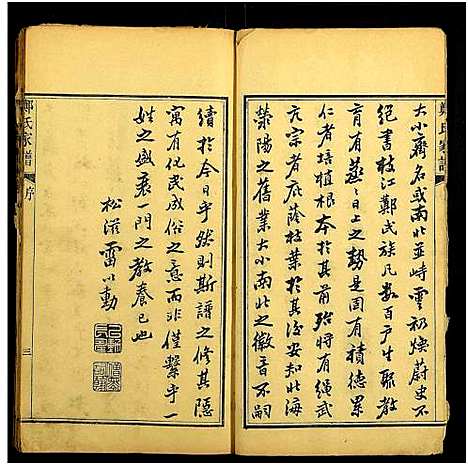 鄭氏家譜
大小齊名或南北並峙雲礽煥蔚史不
絕書枝江鄭氏族凡數百戶生聚教
育有蒸蒸日上之勢是固有積德累
仁者培植根本於其前殆將有繩武
亢宗者庇蔭枝葉於其後安知北海
滎陽之舊業大小南北之徽音不嗣
續於今日乎然則斯譜之修其隱
寓有化民成俗之意而非僅繫乎一
姓之盛衰一門之教養已也
松滋雷以動
鄭氏家譜
序
三